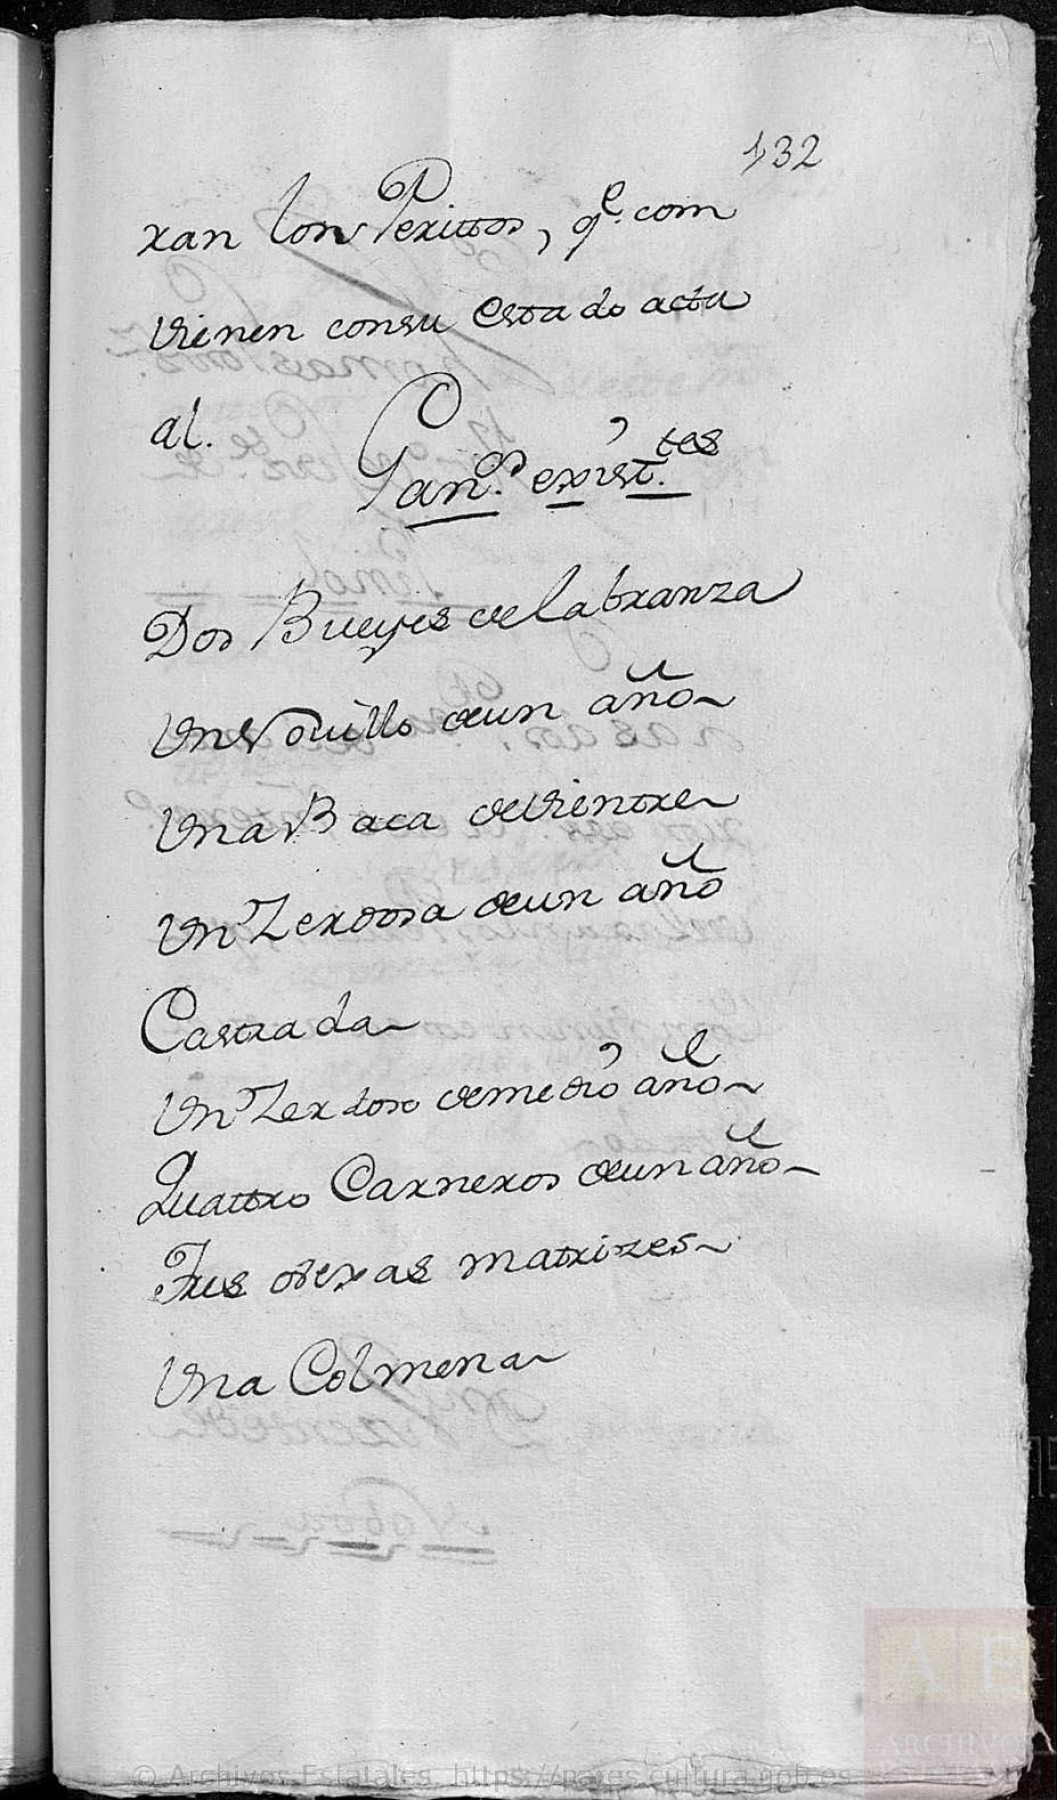 132
ran los Perittos, q.e com
vienen consu estado actu
al.
Gan.os exist.tes
Dos Bueyes de labranza
Un Novillo de un año
Una Baca de vientre
Un Zerdosa de un año
Castrada
Un Zerdoso de medio año
Quattro Carneros de un año
Tres obexas matrizes
Una Colmena
© Archivos Estatales, https://pares.cultura.gob.es
AE
ARCHIVOS